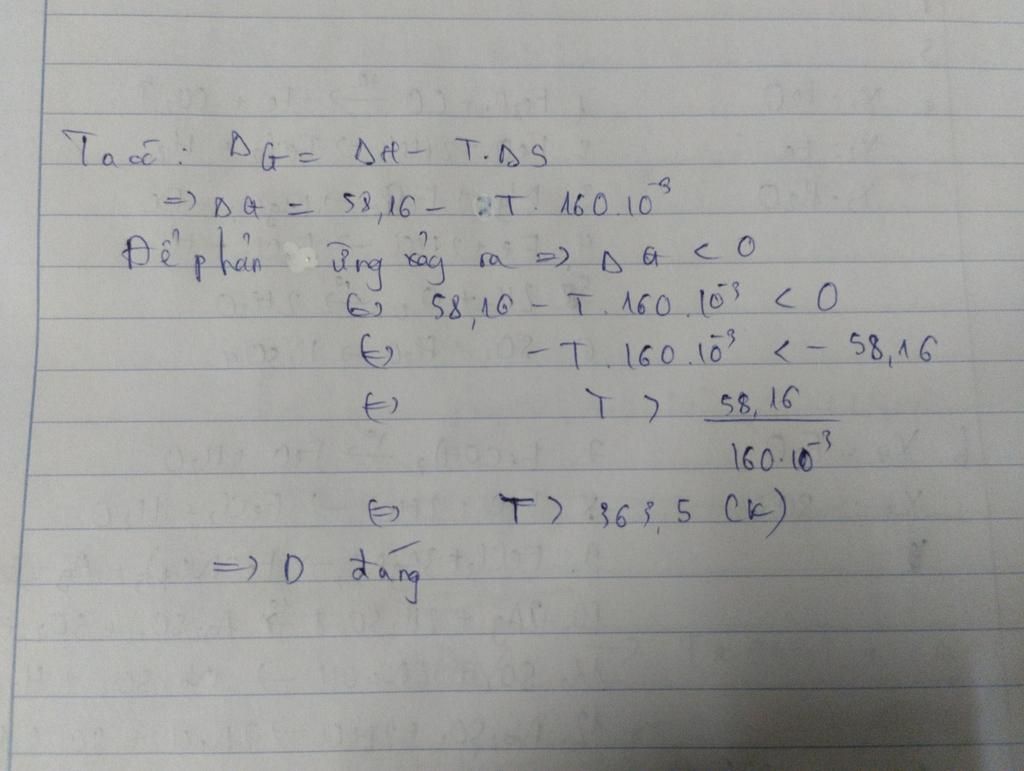 Ta có: ΔG = ΔH - T.ΔS
=> ΔG = 58,16 - T. 160.10⁻³
Để phản ứng xảy ra => ΔG < 0
<=> 58,16 - T. 160.10⁻³ < 0
<=> - T. 160.10⁻³ < - 58,16
<=> T > 58,16 / 160.10⁻³
<=> T > 363,5 (K)
=> D đúng